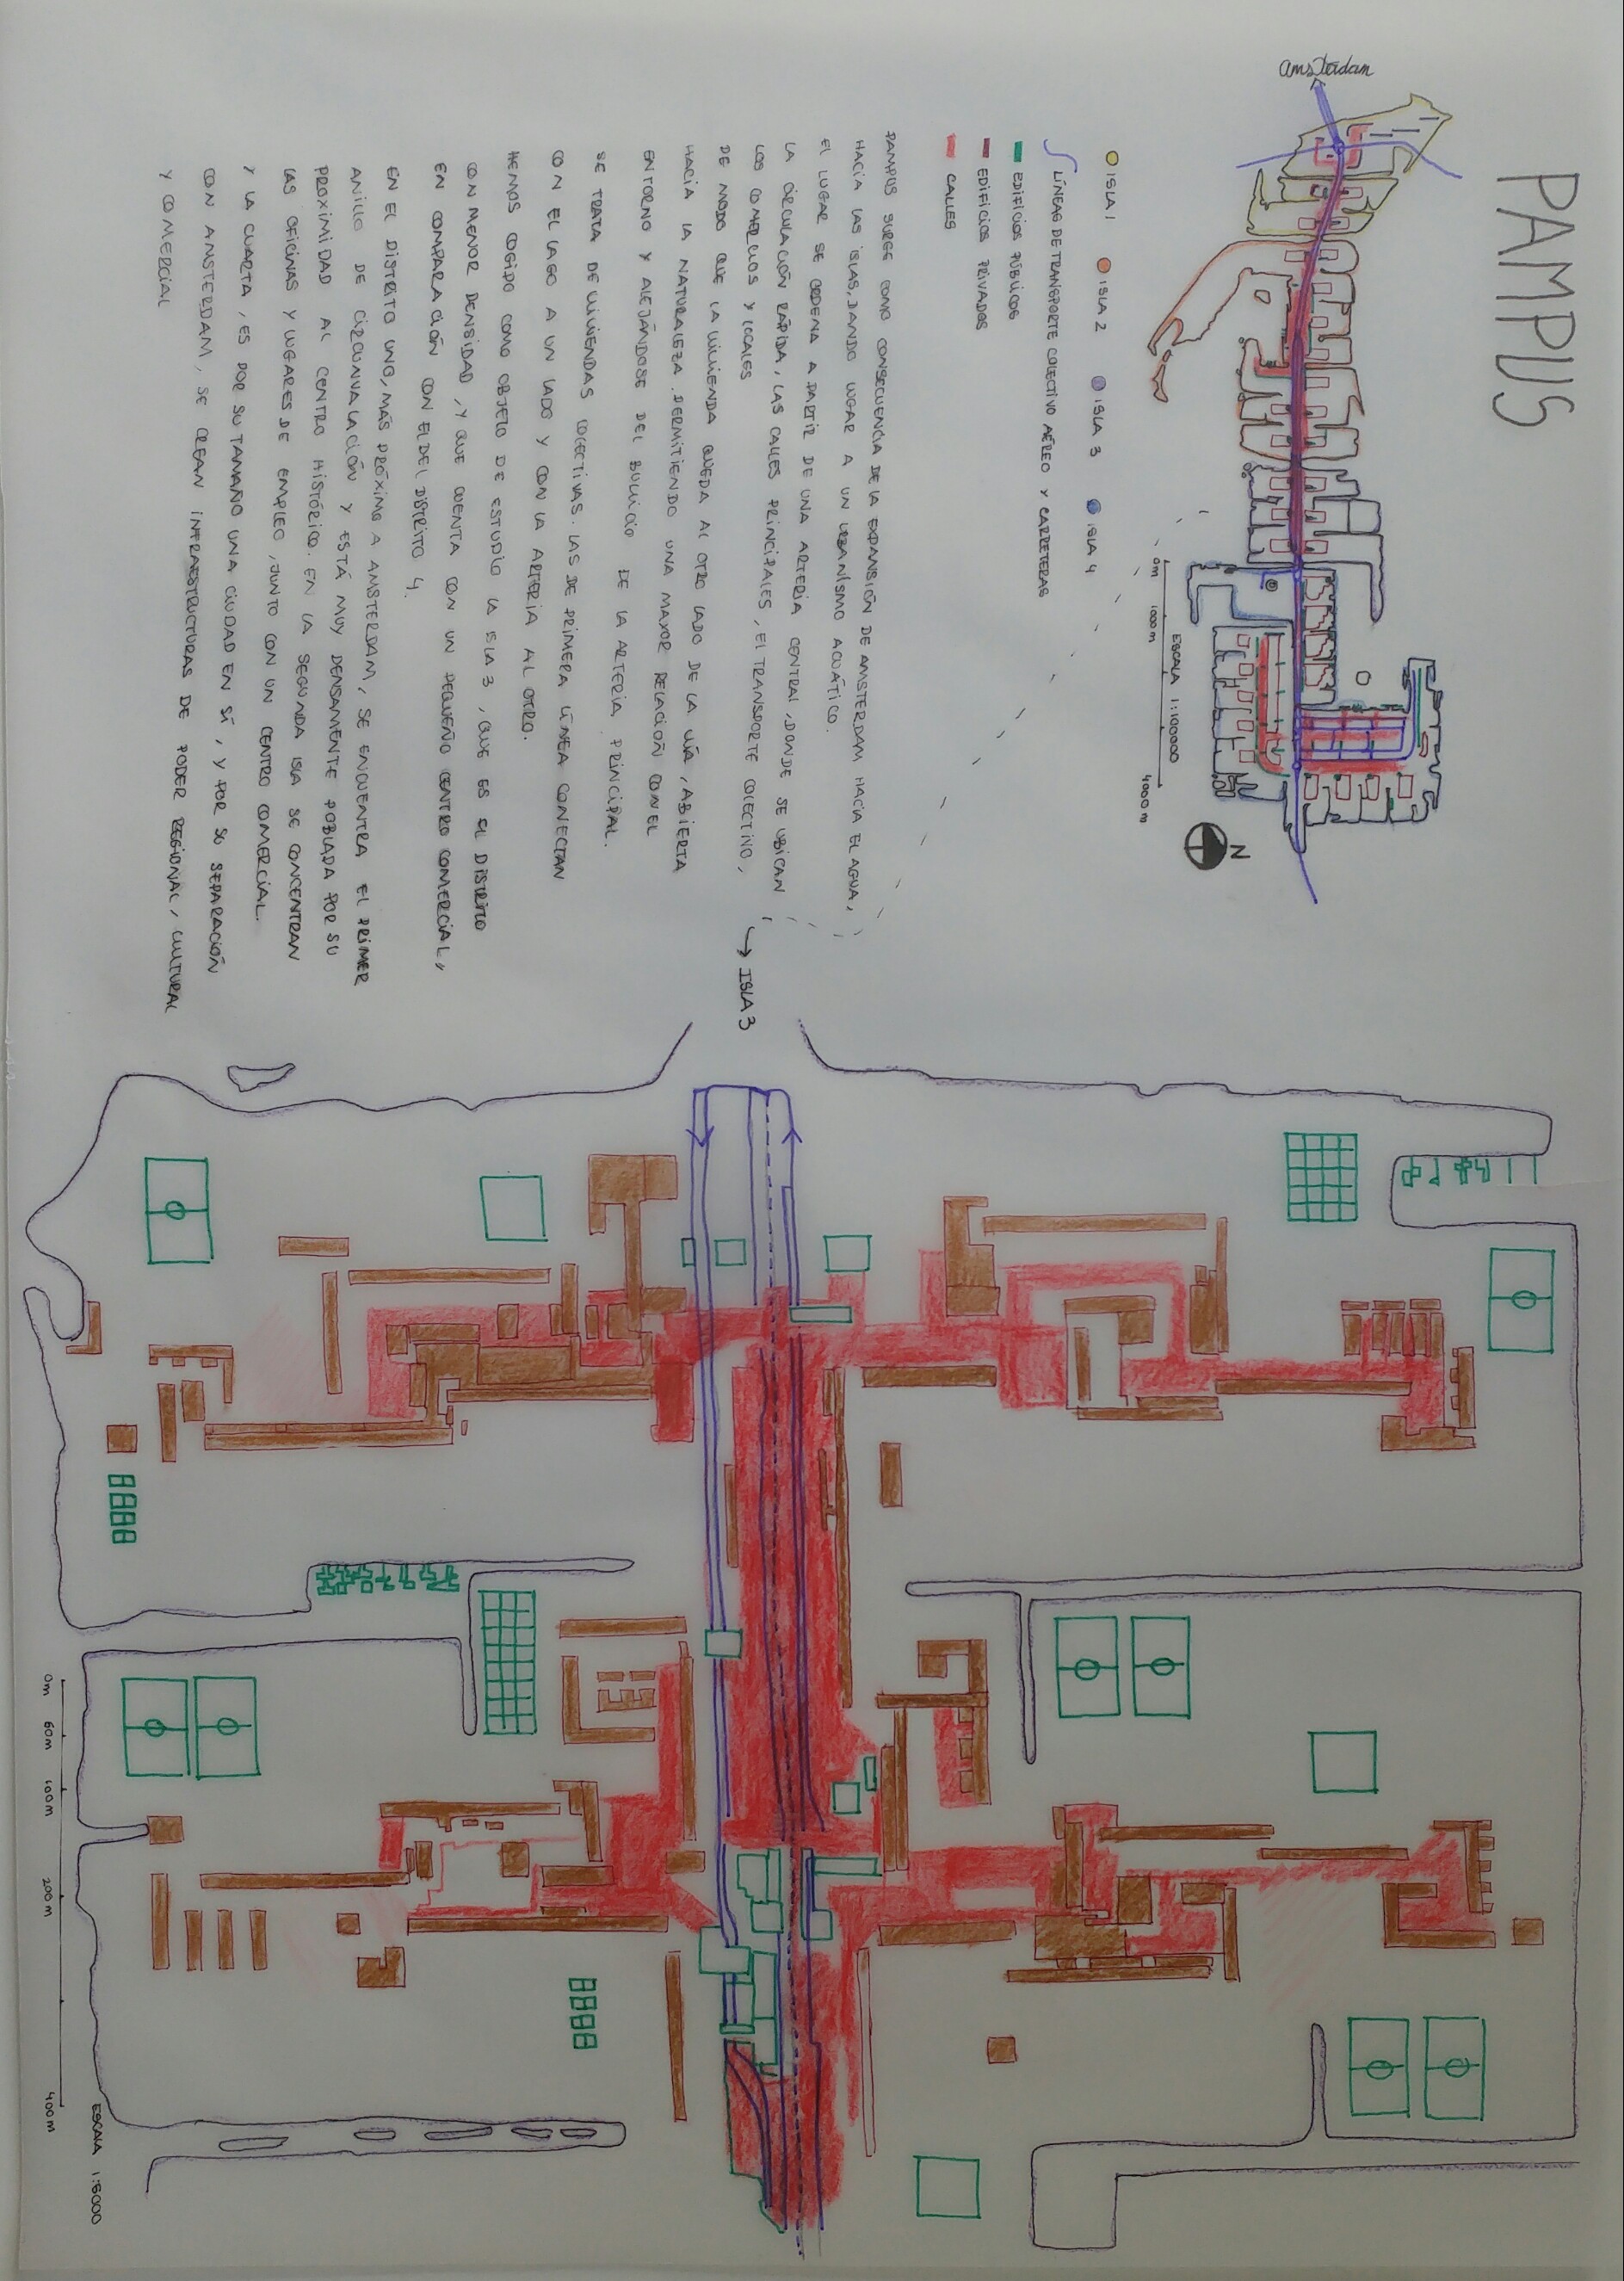 PAMPUS
Amsterdam
ISLA 1
ISLA 2
ISLA 3
ISLA 4
LÍNEAS DE TRANSPORTE COLECTIVO AÉREO Y CARRETERAS
EDIFICIOS PÚBLICOS
EDIFICIOS PRIVADOS
CALLES
0m 1000 m 4000 m
ESCALA 1:100000
N
PAMPUS SURGE COMO CONSECUENCIA DE LA EXPANSIÓN DE AMSTERDAM HACIA EL AGUA,
HACIA LAS ISLAS, DANDO LUGAR A UN URBANÍSMO ACUÁTICO.
EL LUGAR SE ORDENA A PARTIR DE UNA ARTERIA CENTRAL, DONDE SE UBICAN
LA CIRCULACIÓN RÁPIDA, LAS CALLES PRINCIPALES, EL TRANSPORTE COLECTIVO,
LOS COMERCIOS Y LOCALES
DE MODO QUE LA VIVIENDA QUEDA AL OTRO LADO DE LA VÍA, ABIERTA
HACIA LA NATURALEZA. PERMITIENDO UNA MAYOR RELACIÓN CON EL
ENTORNO Y ALEJÁNDOSE DEL BULLICIO DE LA ARTERIA PRINCIPAL.
SE TRATA DE VIVIENDAS COLECTIVAS. LAS DE PRIMERA LÍNEA CONECTAN
CON EL LAGO A UN LADO Y CON LA ARTERIA AL OTRO.
HEMOS COGIDO COMO OBJETO DE ESTUDIO LA ISLA 3, QUE ES EL DISTRITO
CON MENOR DENSIDAD, Y QUE CUENTA CON UN PEQUEÑO CENTRO COMERCIAL,
EN COMPARACIÓN CON EL DEL DISTRITO 4.
EN EL DISTRITO UNO, MÁS PRÓXIMO A AMSTERDAM, SE ENCUENTRA EL PRIMER
ANILLO DE CIRCUNVALACIÓN Y ESTÁ MUY DENSAMENTE POBLADA POR SU
PROXIMIDAD AL CENTRO HISTÓRICO. EN LA SEGUNDA ISLA SE CONCENTRAN
LAS OFICINAS Y LUGARES DE EMPLEO, JUNTO CON UN CENTRO COMERCIAL.
Y LA CUARTA, ES POR SU TAMAÑO UNA CIUDAD EN SÍ, Y POR SU SEPARACIÓN
CON AMSTERDAM, SE CREAN INFRAESTRUCTURAS DE PODER REGIONAL, CULTURAL
Y COMERCIAL
→ ISLA 3
0m 50m 100m 200m 400m
ESCALA 1:5000